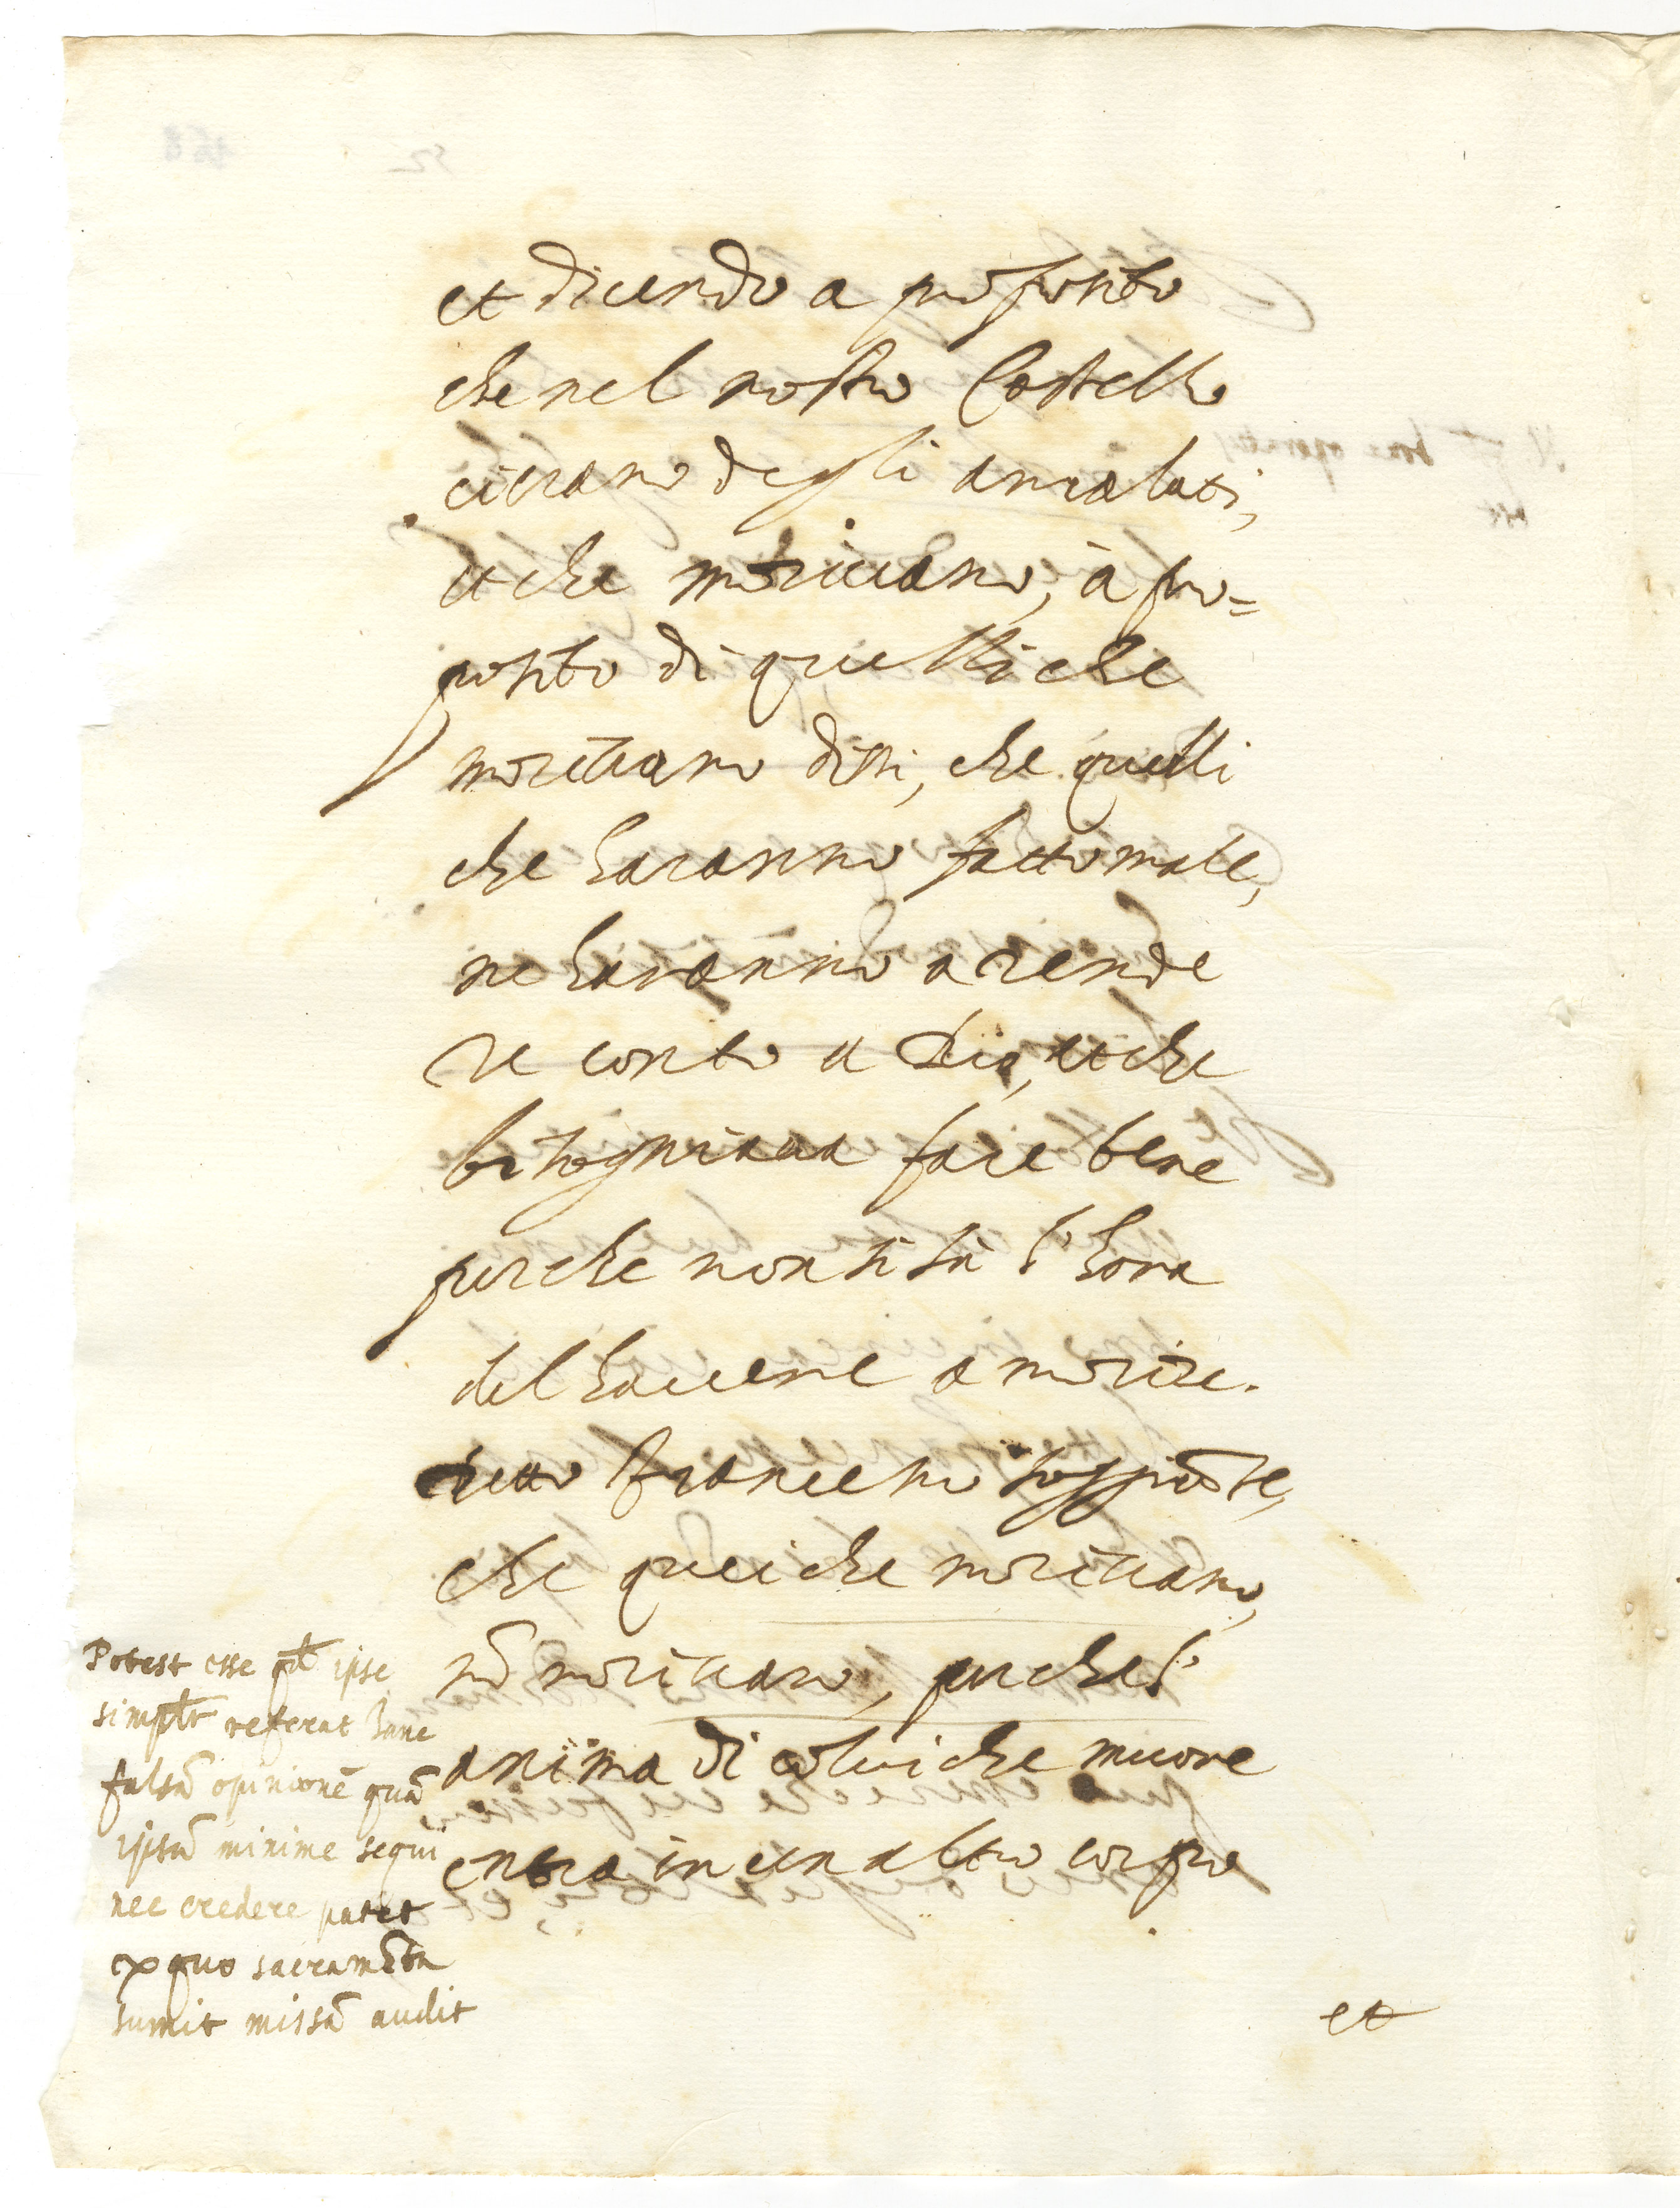 et dicendo a proposito
che nel nostro Castello
ci erano degli amalati,
et che moriuano, à pro=
posito di quelli che
moriuano dissi, che quelli
che haranno fatto male,
ne haranno a rende
re conto a Dio, et che
bisogniaua fare bene
perche non si sà l'hora
del hauere a morire.
detto Francesco soggionse,
che quei che moriuano,
nõ moriuano, perche l'
anima di colui che muore
entra in un altro corpo
et
Potest esse ipse
simplr referat hanc
falsã opinionẽ quã
ipsũ minime sequi
nec credere patet
ex quo sacramẽta
sumit missã audit